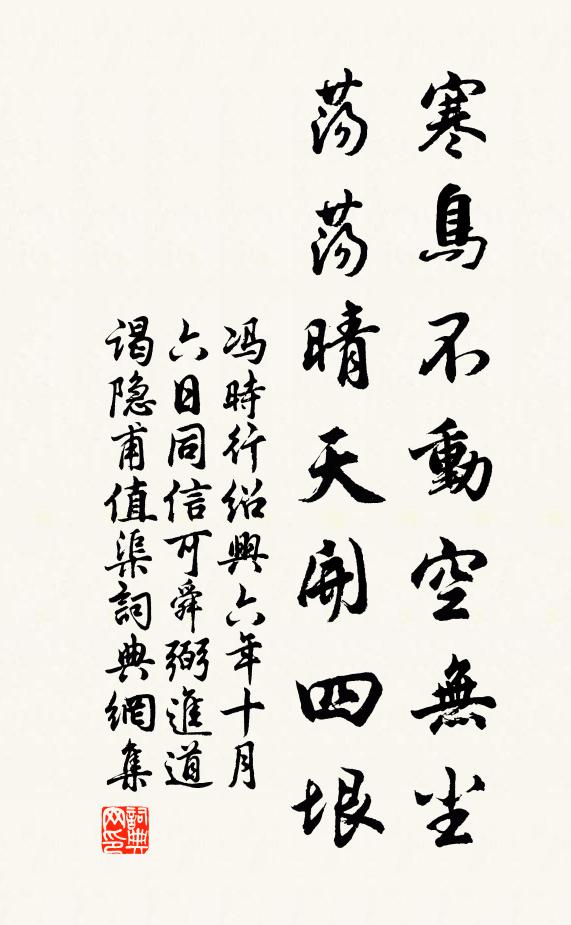 寒鳥不動空無尘
荡荡晴天開四垠
冯時行紹興六年十月
六日同信可舜弼進道
谒隐甫值渠詞典網集
詞典網印